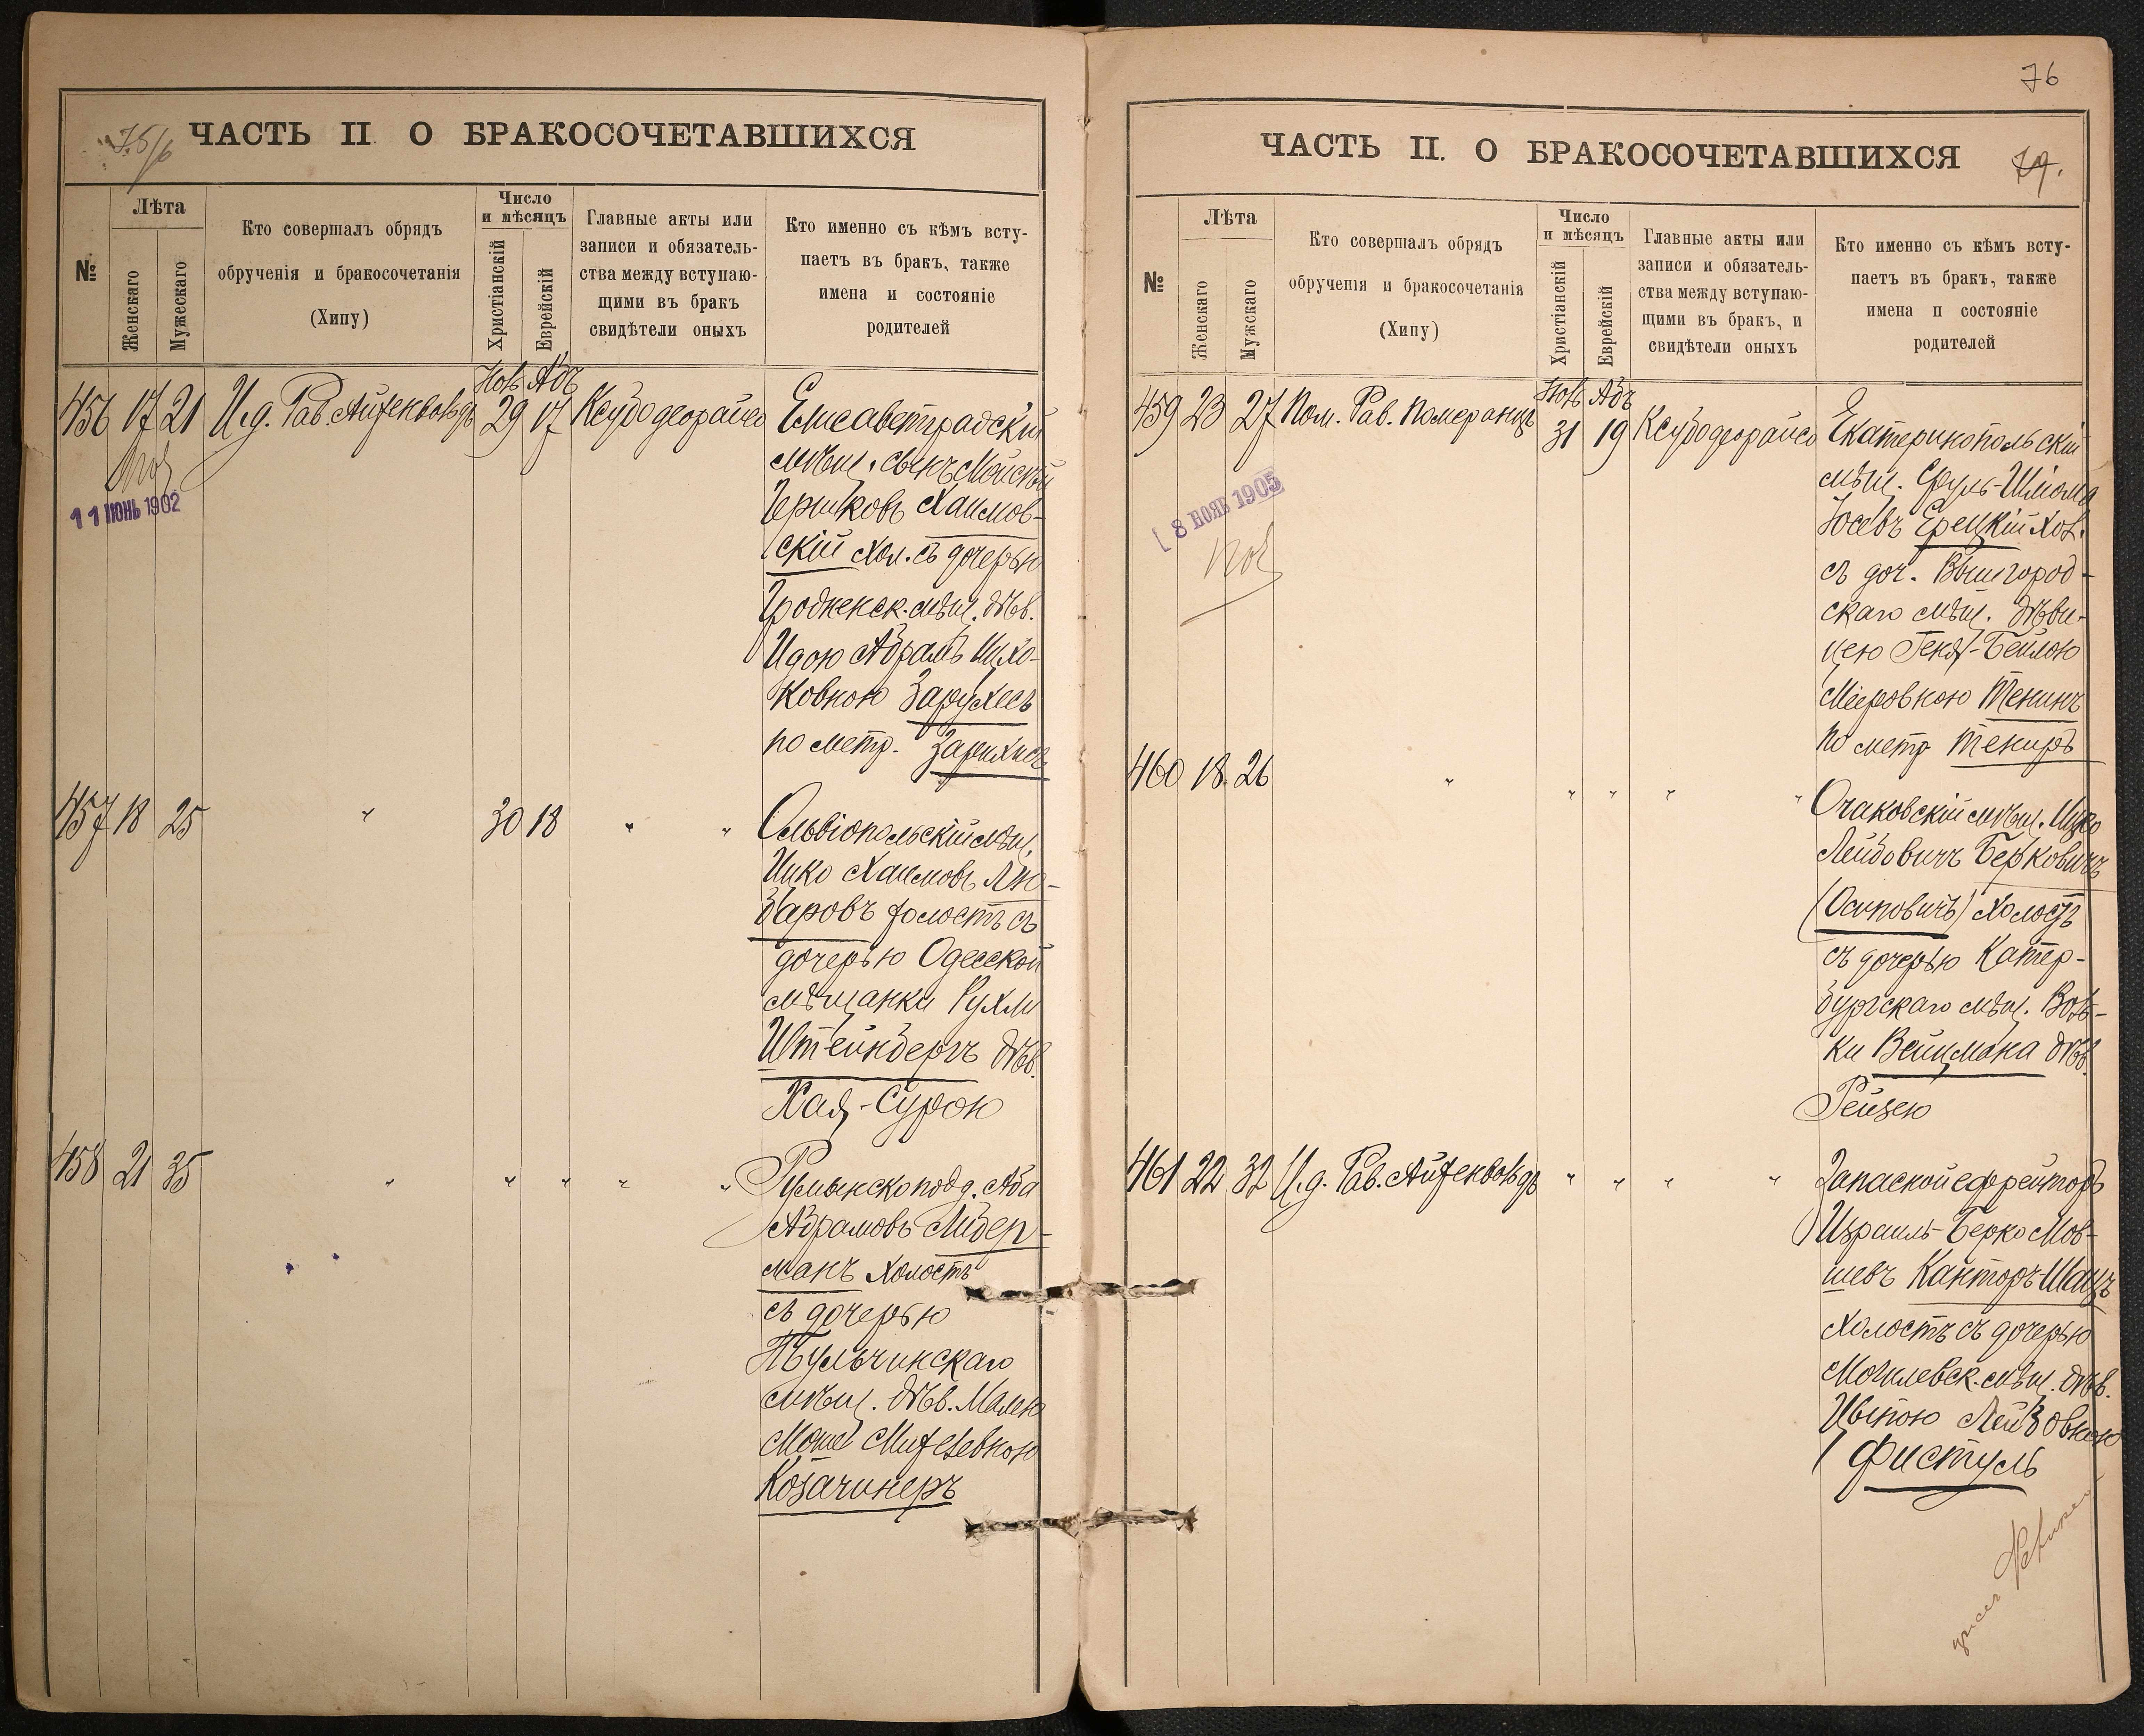 75/6
ЧАСТЬ II О БРАКОСОЧЕТАВШИХСЯ
№
Лѣта
Женскаго
Мужескаго
Кто совершалъ обрядъ
обрученія и бракосочетанія
(Хипу)
Число
и мѣсяцъ
Христіанскій
Еврейскій
Главные акты или
записи и обязатель-
ства между вступаю-
щими въ бракъ
свидѣтели оныхъ
Кто именно съ кѣмъ всту-
паетъ въ бракъ, также
имена и состояніе
родителей
456 17 21 И.д. Рав. Айзенвольдъ 29 17
Абъ
11 ИЮНЬ 1902
Елисаветградскій
мѣщ. сынъ Мойсѣй
Гершковъ Хаимов-
скій Хол. съ дочерью
Гродненск. мѣщ. дѣв.
Идою Абрамъ Ицко-
ковною Зарухесъ
по метр. Зарихисъ
457 18 25 " 30 18 " "
Ольвіопольскій мѣщ.
Ицко Хаимовъ Лю-
баровъ холостъ съ
дочерью Одесской
мѣщанки Рухли
Штейнбергъ дѣв.
Хая-Сурою
458 21 35 " " " " "
Румынскопод. Аба
Абрамовъ Либер-
манъ холостъ
съ дочерью
Тульчинскаго
мѣщ. дѣв. Малею
Козачинеръ
76
ЧАСТЬ II. О БРАКОСОЧЕТАВШИХСЯ
79.
№
Лѣта
Женскаго
Мужскаго
Кто совершалъ обрядъ
обрученія и бракосочетанія
(Хипу)
Число
и мѣсяцъ
Христіанскій
Еврейскій
Главные акты или
записи и обязатель-
ства между вступаю-
щими въ бракъ, и
свидѣтели оныхъ
Кто именно съ кѣмъ всту-
паетъ въ бракъ, также
имена и состояніе
родителей
459 23 27 Пом. Рав. Померанцъ 31 19
Абъ
8 НОЯБ 1905
Екатеринопольскій
мѣщ. Сруль-Шлома
Іосевъ Ерецкій Хол.
съ доч. Вышгород-
скаго мѣщ. дѣви-
цею Геня-Бейлою
Мееровною Тенинъ
по метр Тениръ
460 18 26 " " " " "
Очаковскій мѣщ. Ицко
Лейбовичъ Берковичъ
(Осиповичъ) Холостъ
съ дочерью Катер-
бургскаго мѣщ. Воль-
ки Вейцмана дѣв.
Рейзею
461 22 32 И.д. Рав. Айзенвольдъ " " " "
Запасной ефрейторъ
Израиль-Берко Мов-
шевъ Канторъ-Шацъ
холостъ съ дочерью
Могилевск. мѣщ. дѣв.
Ципою Лейбовною
Фистуль